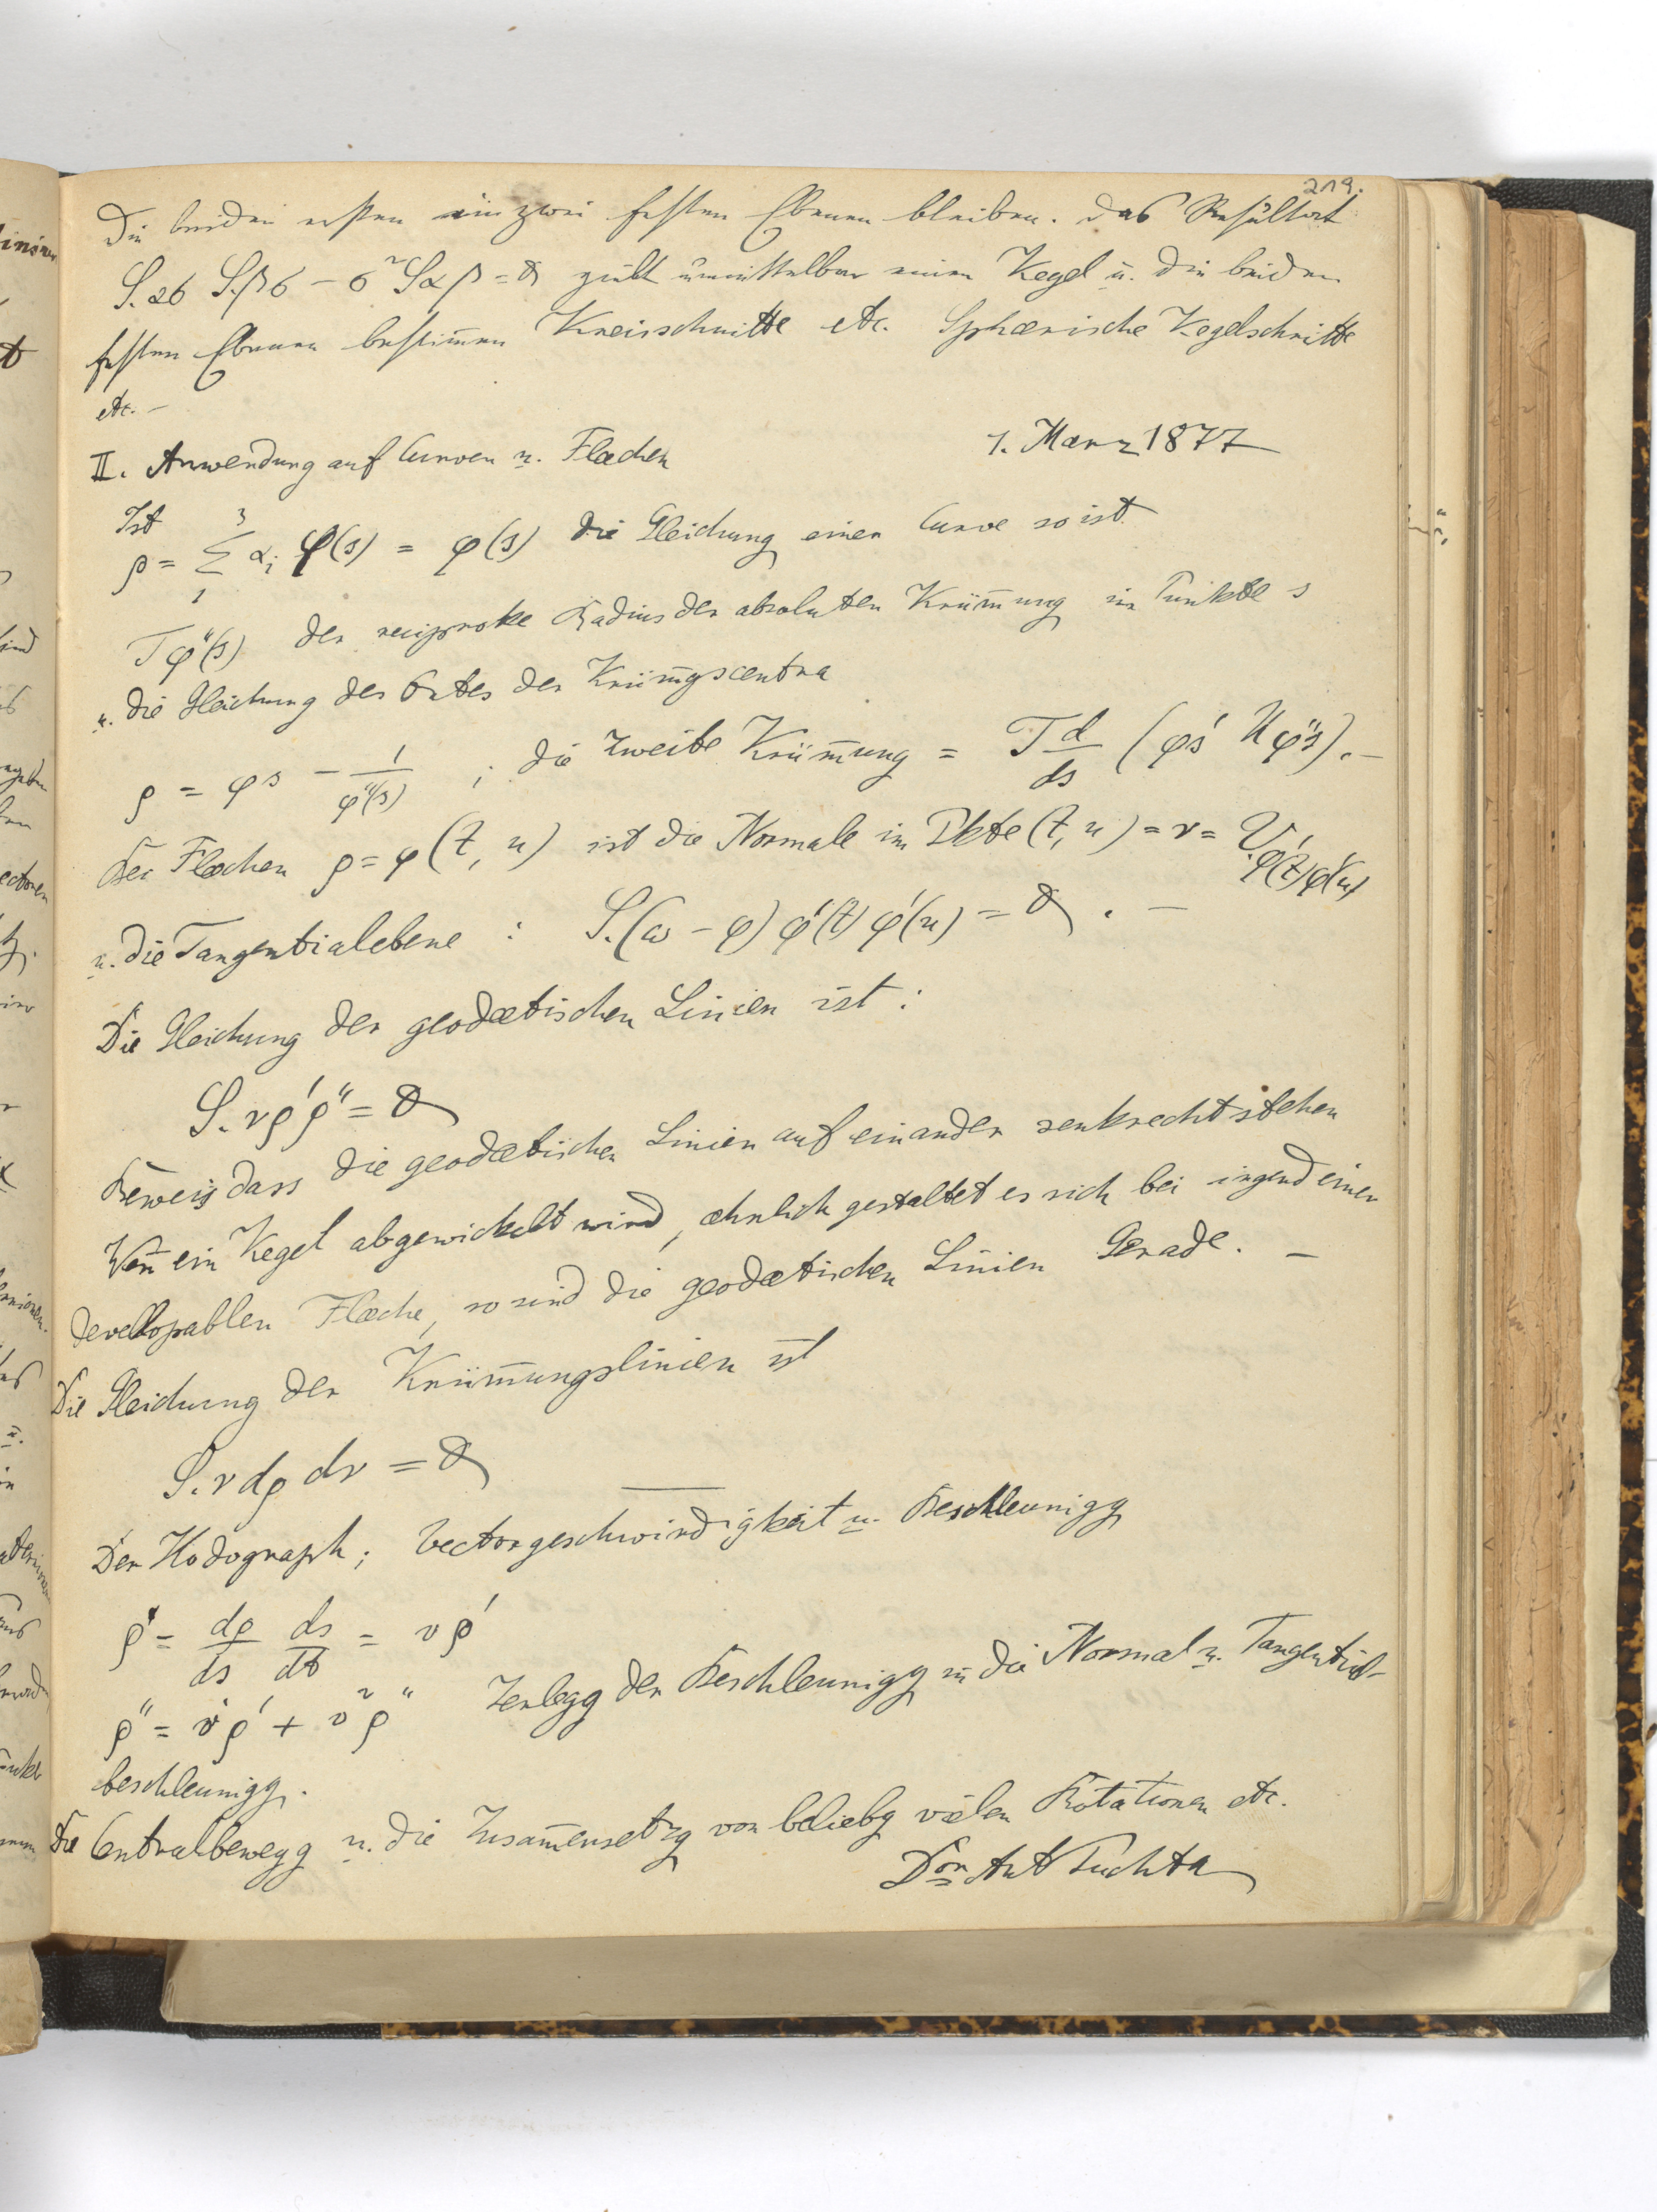 219.
Die beiden ersten in zwei festen Ebenen bleiben. Das Resultat
S.ασ S.βσ − σ²Sαβ = 0 gibt unmittelbar einen Kegel u. die beiden
festen Ebenen bestim̄en Kreisschnitte etc. Sphærische Kegelschnitte
etc. –
II. Anwendung auf Curven u. Flæchen 1. Mærz 1877
Ist
ρ = Σ αᵢ φ(s) = φ(s) die Gleichung einer Curve so ist
3
1
Tφ''(s) der reciproke Radius der absoluten Krüm̄ung im Punkte s
u. die Gleichung des Ortes der Krüm̄gscentra
ρ = φs − 1/φ''(s) ; die zweite Krüm̄ung = T d/ds (φ's Uφ''s). –
Bei Flæchen ρ = φ(t, u) ist die Normale im Pkte (t, u) = ν = V.φ'(t)φ'(u)
u. die Tangentialebene : S.(ω − φ) φ'(t) φ'(u) = 0 . –
Die Gleichung der geodætischen Linien ist :
S.νρ'ρ'' = 0
Beweis dass die geodætischen Linien auf einander senkrecht stehen
Wen̄ ein Kegel abgewickelt wird, æhnlich gestaltet es sich bei irgend einer
developpablen Flæche, so sind die geodætischen Linien Gerade. –
Die Gleichung der Krüm̄ungslinien ist
S.ν dρ dν = 0
Der Hodograph; Vectorgeschwindigkeit u. Beschleunigg
ρ' = dρ/ds ds/dt = vρ'
ρ'' = v̇ρ' + v²ρ'' Zerlegg der Beschleunigg in die Normal u. Tangential-
beschleunigg.
Die Centralbewegg u. die Zusam̄ensetzg von beliebg vielen Rotationen etc.
Dor Ant Puchta